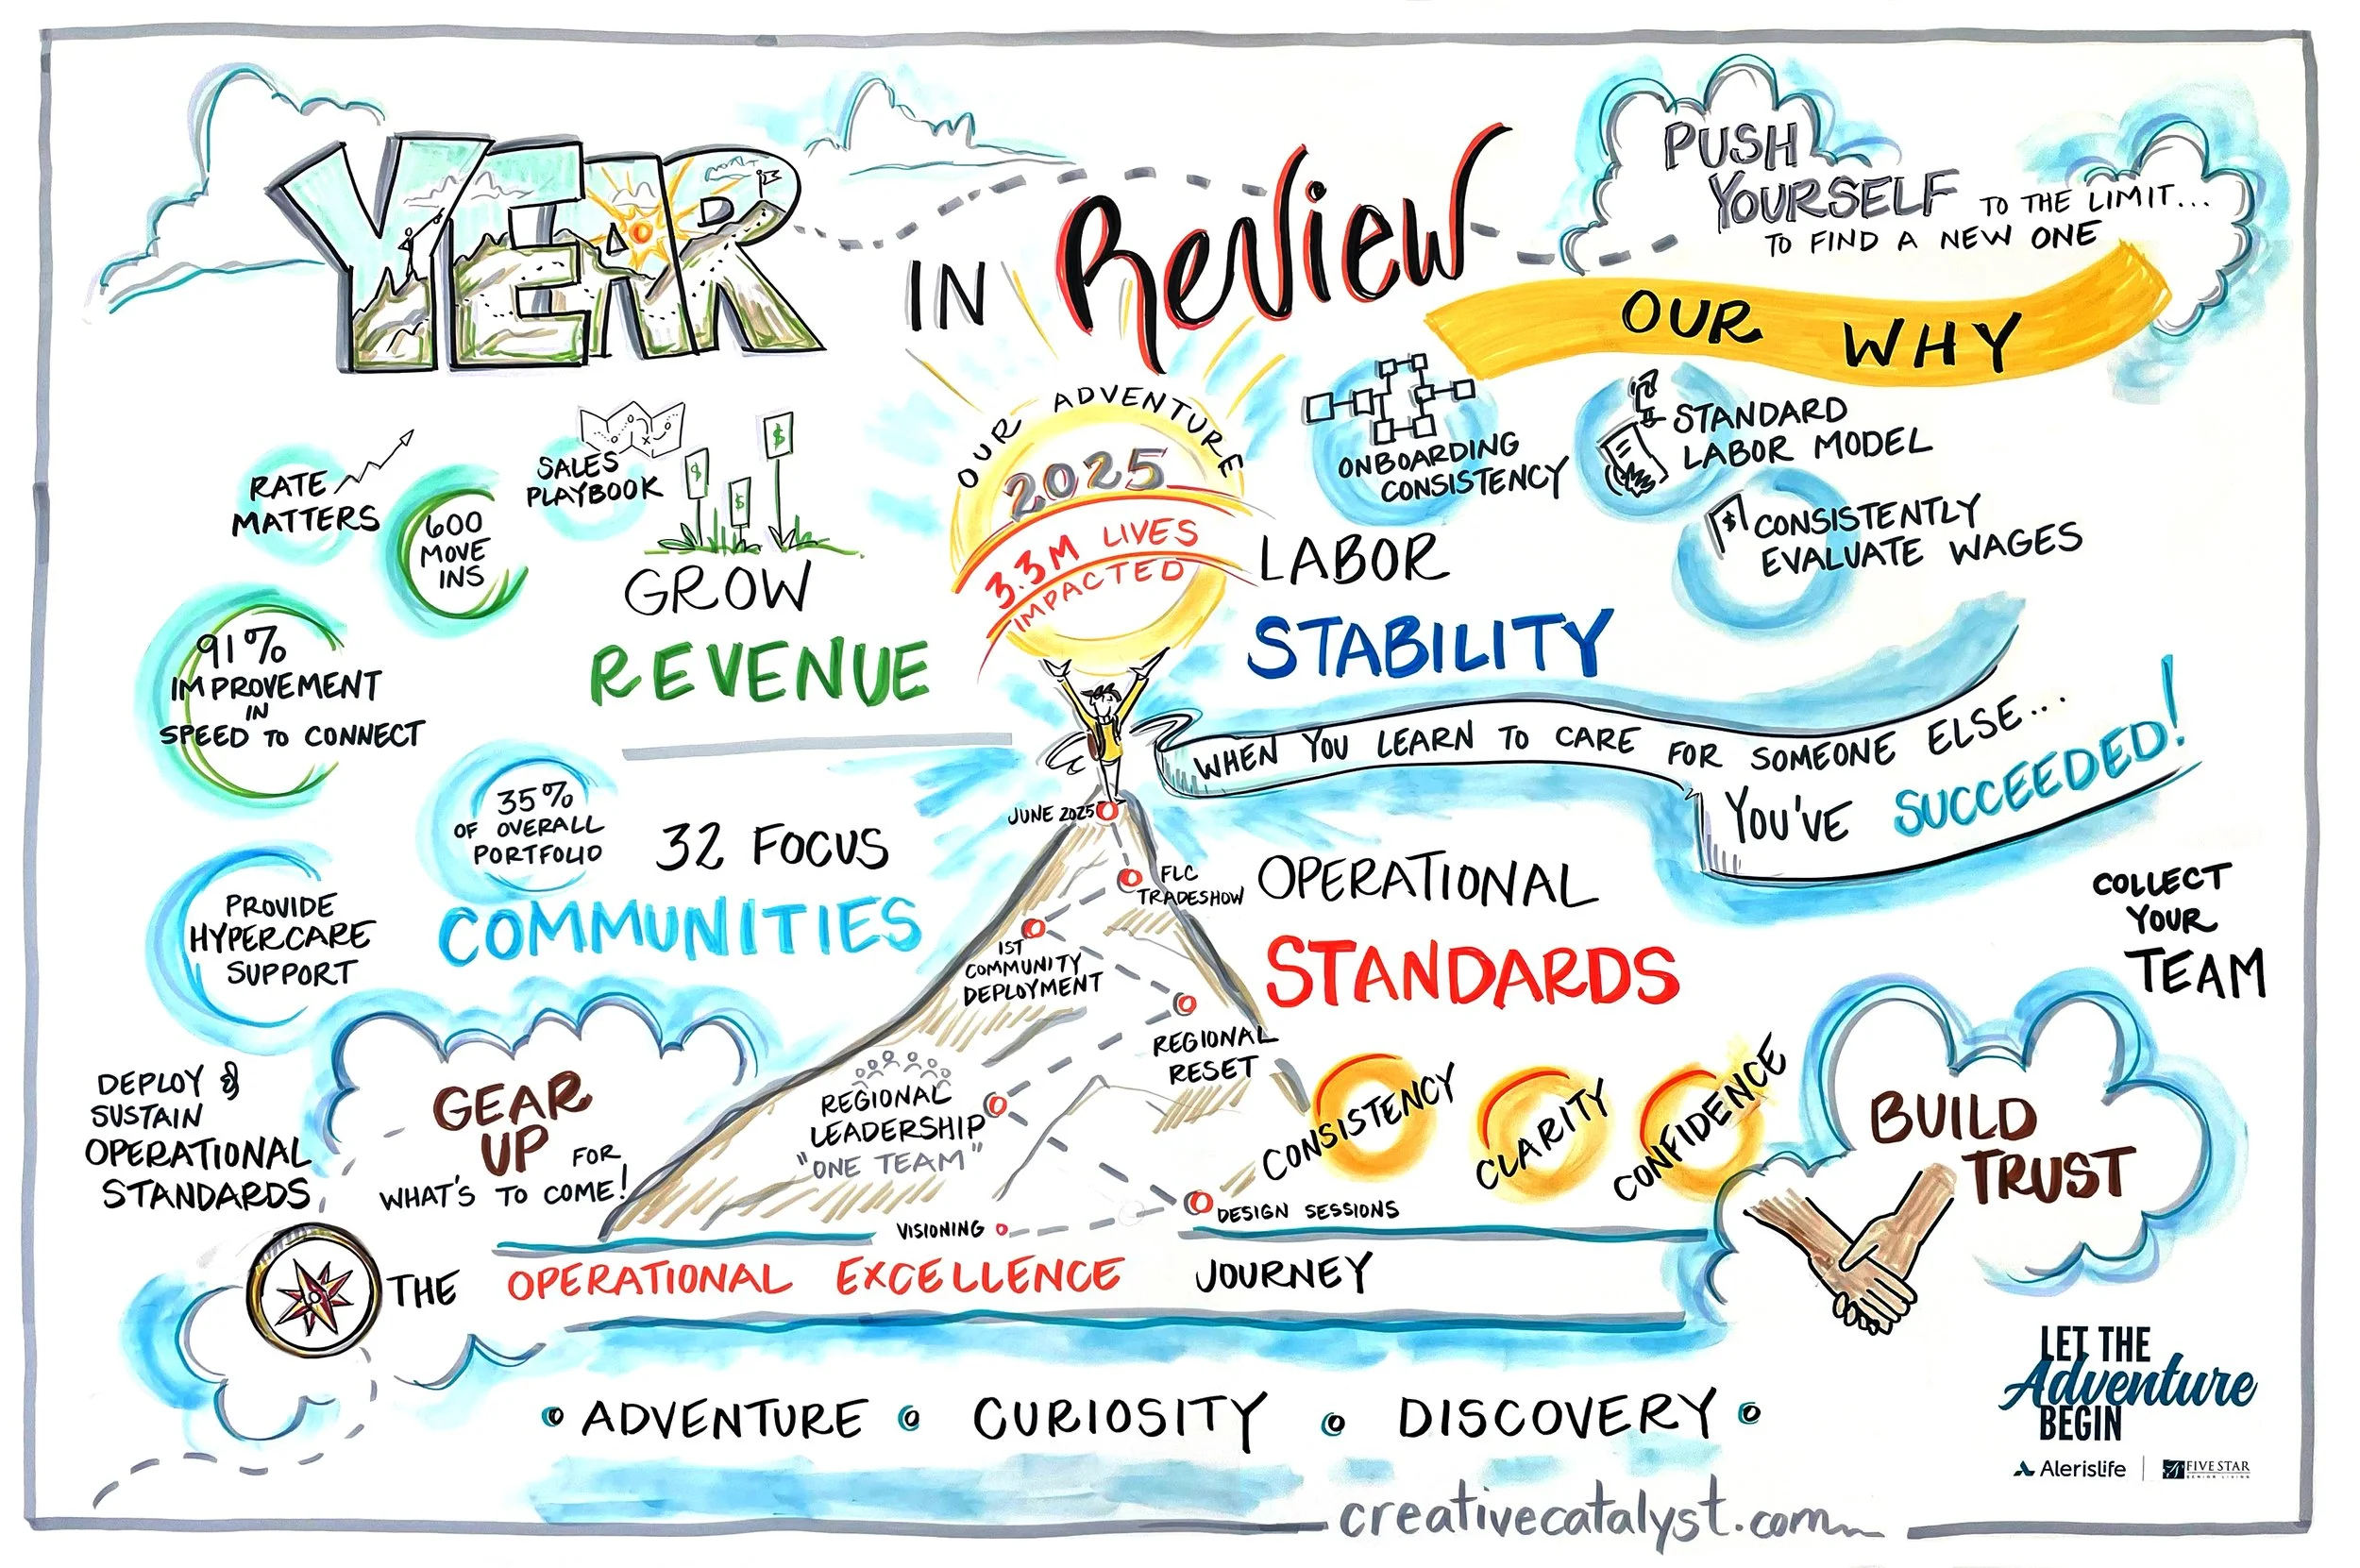 YEAR
IN Review
PUSH
YOURSELF TO THE LIMIT...
TO FIND A NEW ONE
OUR WHY
RATE
MATTERS
600
MOVE
INS
SALES
PLAYBOOK
$
$
$
91%
IMPROVEMENT
IN
SPEED TO CONNECT
GROW
REVENUE
OUR ADVENTURE
2025
3.3M LIVES
IMPACTED
ONBOARDING
CONSISTENCY
STANDARD
LABOR MODEL
$
CONSISTENTLY
EVALUATE WAGES
LABOR
STABILITY
WHEN YOU LEARN TO CARE FOR SOMEONE ELSE...
YOU'VE SUCCEEDED!
35%
OF OVERALL
PORTFOLIO
32 FOCUS
COMMUNITIES
PROVIDE
HYPERCARE
SUPPORT
JUNE 2025
FLC
TRADESHOW
1ST
COMMUNITY
DEPLOYMENT
REGIONAL
RESET
REGIONAL
LEADERSHIP
"ONE TEAM"
DESIGN SESSIONS
VISIONING
OPERATIONAL
STANDARDS
CONSISTENCY
CLARITY
CONFIDENCE
COLLECT
YOUR
TEAM
BUILD
TRUST
DEPLOY &
SUSTAIN
OPERATIONAL
STANDARDS
GEAR
UP FOR
WHAT'S TO COME!
THE OPERATIONAL EXCELLENCE JOURNEY
• ADVENTURE • CURIOSITY • DISCOVERY •
LET THE
Adventure
BEGIN
Alerislife | FIVE STAR
SENIOR LIVING
creativecatalyst.com